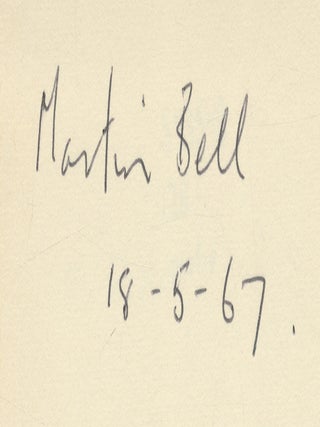 Martin Bell
18-5-67.